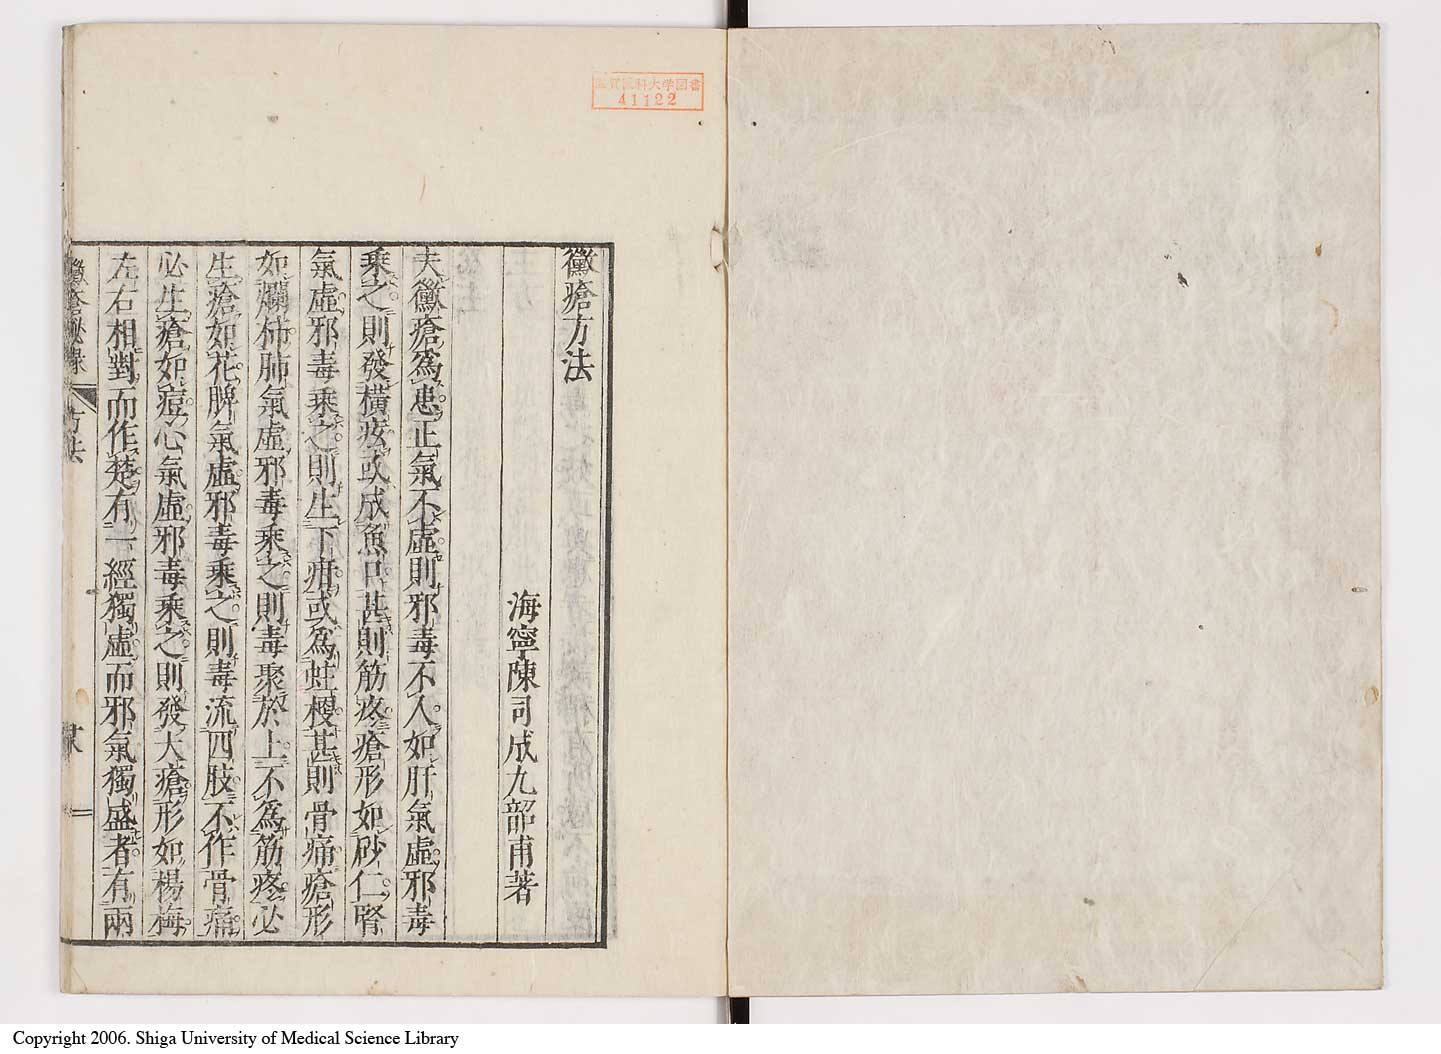 黴瘡方法
海寧陳司成九韶甫著
夫黴瘡爲患正氣不虛則邪毒不入如肝氣虛邪毒
乘之則發橫痃或成魚口甚則筋疼瘡形如砂仁腎
氣虛邪毒乘之則生下疳或爲蛀梗甚則骨痛瘡形
如爛柿肺氣虛邪毒乘之則毒聚於上不爲筋疼必
生瘡如花脾氣虛邪毒乘之則毒流四肢不作骨痛
必生瘡如痘心氣虛邪毒乘之則發大瘡形如楊梅
左右相對而作楚有一經獨虛而邪氣獨盛者有兩
黴瘡秘錄
方法
滋賀医科大学図書
41122
Copyright 2006. Shiga University of Medical Science Library